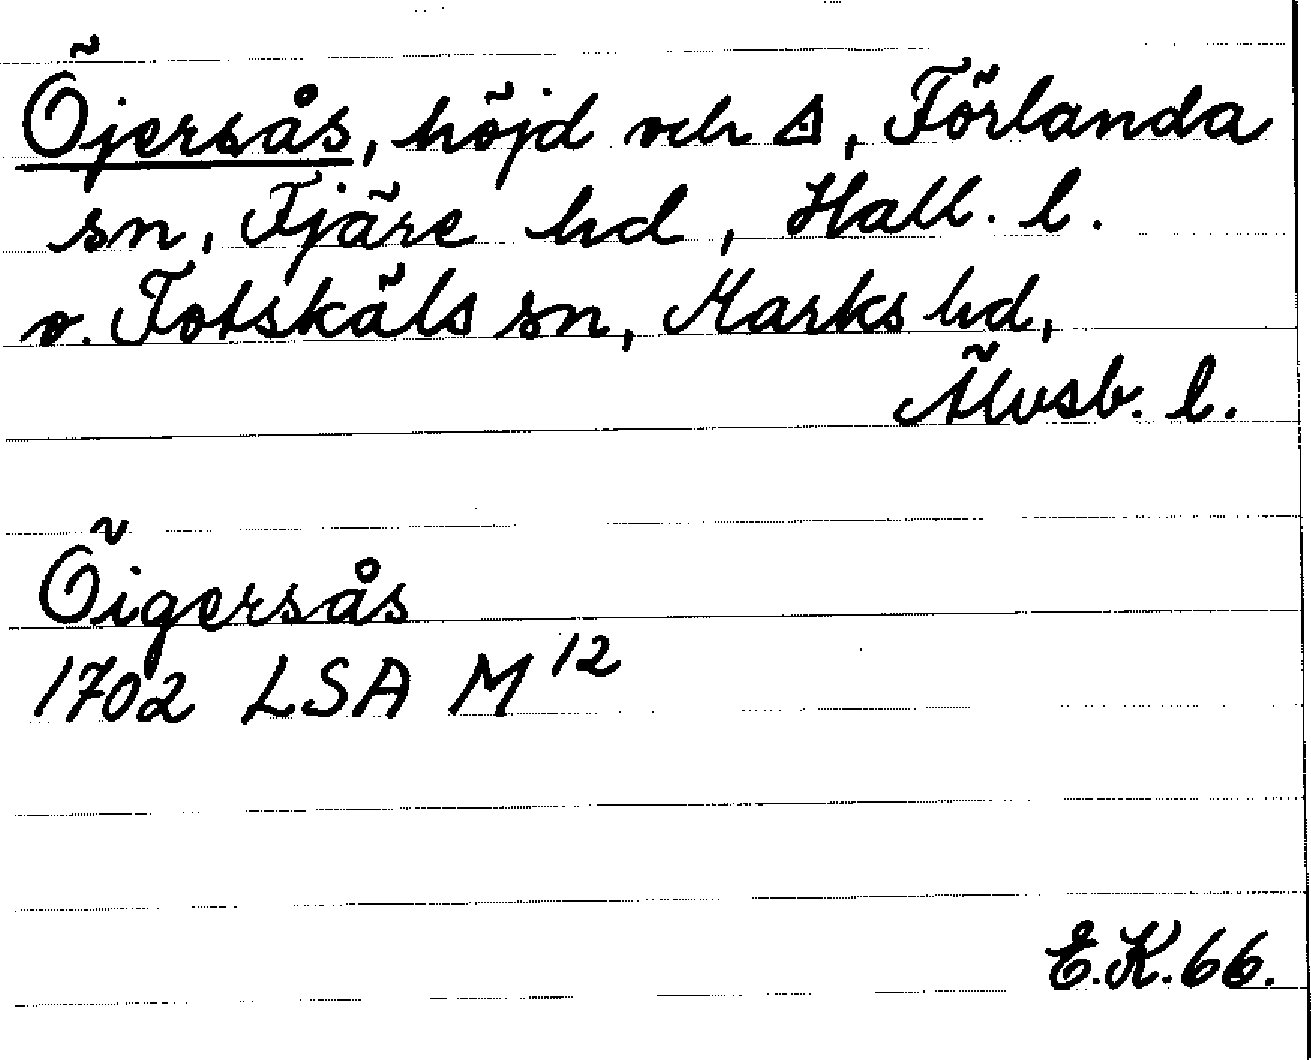 Öjersås, höjd och △, Förlanda
sn, Fjäre hd, Hall. l.
o. Fotskäls sn, Marks hd,
Älvsb. l.
Öigersås
1702 LSA M¹²
E.K. 66.